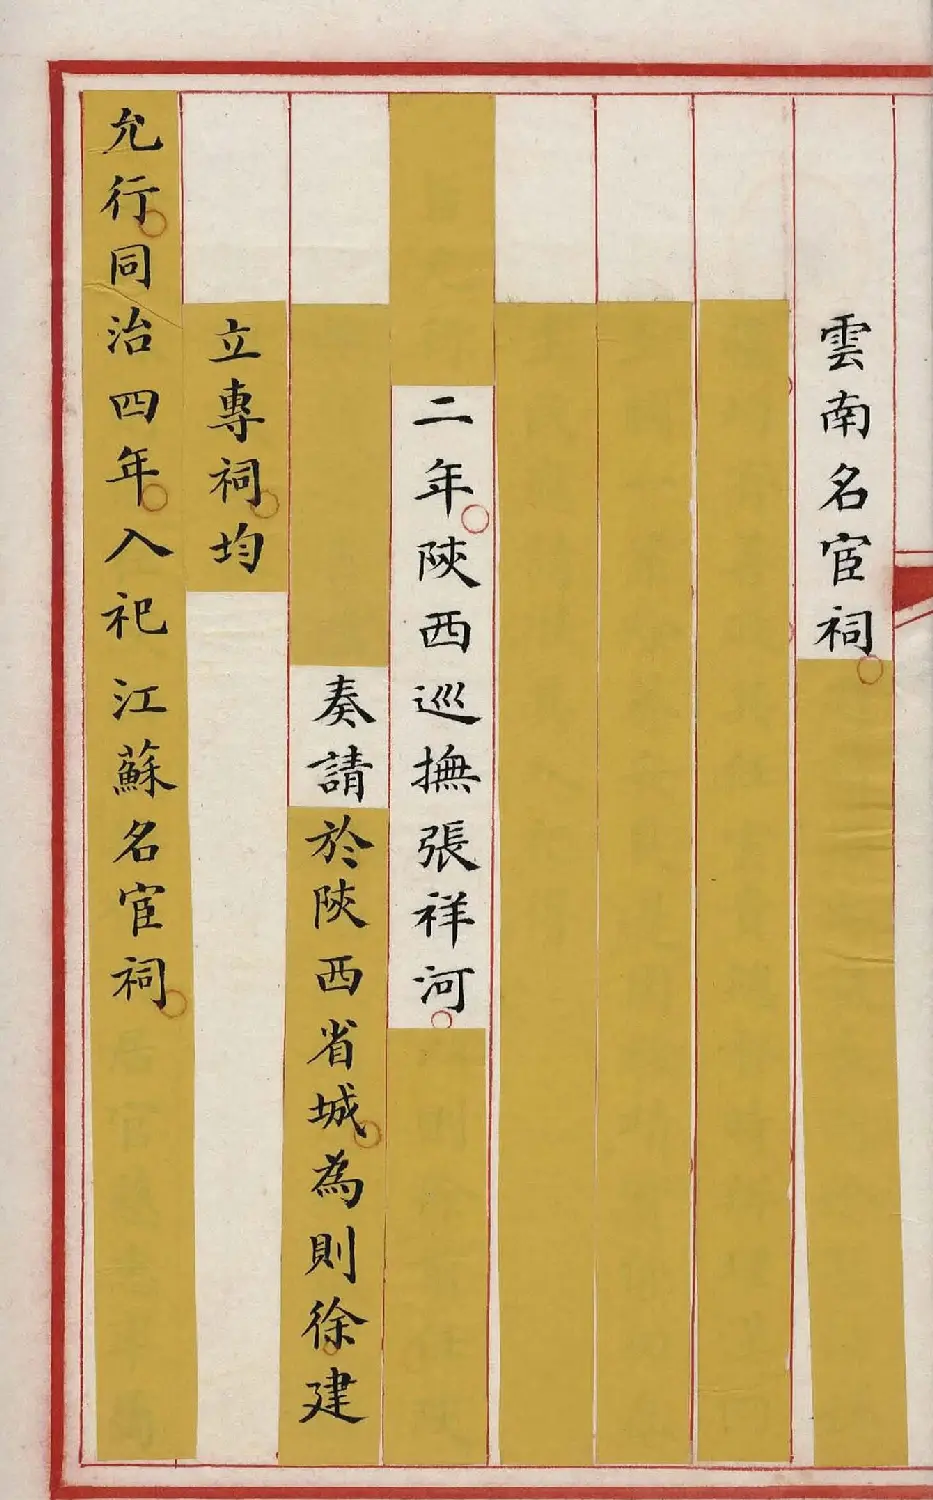 雲南名宦祠
二年陝西巡撫張祥河
奏請於陝西省城為則徐建
立專祠均
允行同治四年入祀江蘇名宦祠